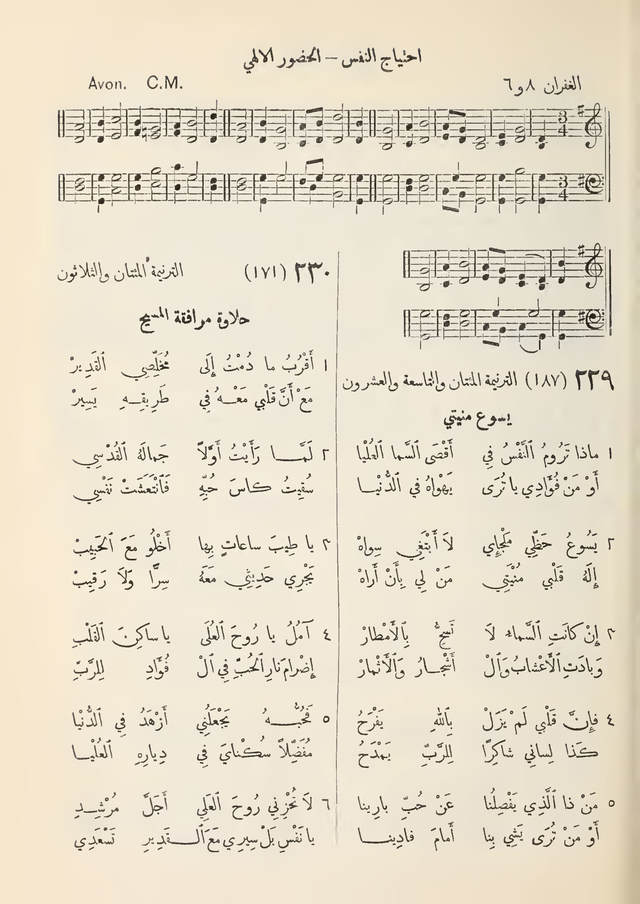 احتياج النفس – الحضور الالهي
الغفران ٨ و٦
Avon. C.M.
٢٢٩ (١٨٧) الترنيمة المئتان والتاسعة والعشرون
يسوع منيتي
١ ماذا تَرُومُ النَّفْسُ فِي أَقْصَى السَّما العُلْيا
أَوْ مَنْ فُؤَادِي يا تُرَى يَهْواهُ فِي الدُّنْيا
٢ يَسُوعُ حَظِّي مَلْجَإِي لاَ أَبْتَغِي سِواهْ
إِلٰهُ قَلْبِي مُنْيَتِي مَنْ لِي بِأَنْ أَراهْ
٣ إِنْ كانَتِ السَّماءُ لَمْ تَسِحَّ بِالأَمْطارْ
وَبادَتِ الأَعْشابُ وَالْ أَشْجارُ وَالأَثْمارْ
٤ فَإِنَّ قَلْبِي لَمْ يَزَلْ بِاللهِ يَفْرَحُ
كَذا لِسانِي شاكِرًا لِلرَّبِّ يَمْدَحُ
٥ مَنْ ذا الَّذِي يَفْصِلُنا عَنْ حُبِّ بارِينا
أَوْ مَنْ تُرَى يَشِي بِنا أَمامَ فادِينا
٢٣٠ (١٧١) الترنيمة المئتان والثلاثون
حلاوة مرافقة المسيح
١ أَقْرُبُ ما دُمْتُ إِلَى مُخَلِّصِي القَدِيرْ
مَعْ أَنَّ قَلْبِي مَعْهُ فِي طَرِيقِهِ يَسِيرْ
٢ لَمَّا رَأَيْتُ أَوَّلاً جَمالَهُ القُدْسِي
سُقِيتُ كاسَ حُبِّهِ فَانْتَعَشَتْ نَفْسِي
٣ يا طِيبَ ساعاتٍ بِها أَخْلُو مَعَ الحَبِيبْ
يَجْرِي حَدِيثِي مَعَهُ سِرًّا وَلاَ رَقِيبْ
٤ آمُلُ يا رُوحَ العُلَى يا ساكِنَ القَلْبِ
إِضْرامَ نارِ الحُبِّ فِي الْ فُؤَادِ لِلرَّبِّ
٥ فَحُبُّهُ يَجْعَلُنِي أَزْهَدُ فِي الدُّنْيا
مُفَضِّلاً سُكْنايَ فِي دِيارِهِ العُلْيا
٦ لاَ تُحْزِنِي رُوحَ العَلِي أَجَلَّ مُرْشِدِ
يا نَفْسِ بَلْ سِيرِي مَعَ القَدِيرِ تَسْعَدِي